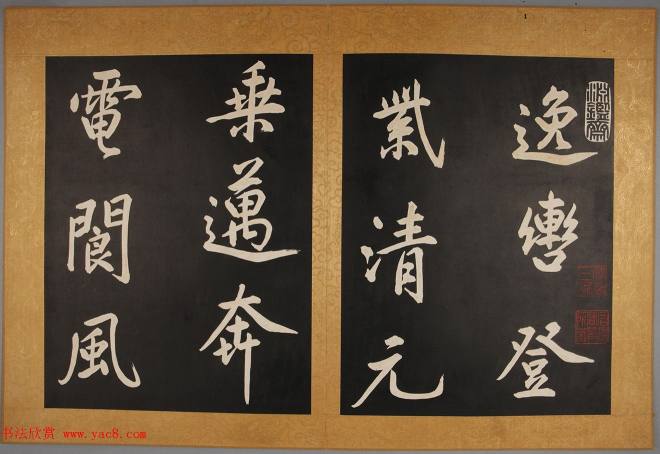 淵鑒齋
逸轡登
紫清元
乘邁奔
電閬風
书法欣赏 www.yac8.com